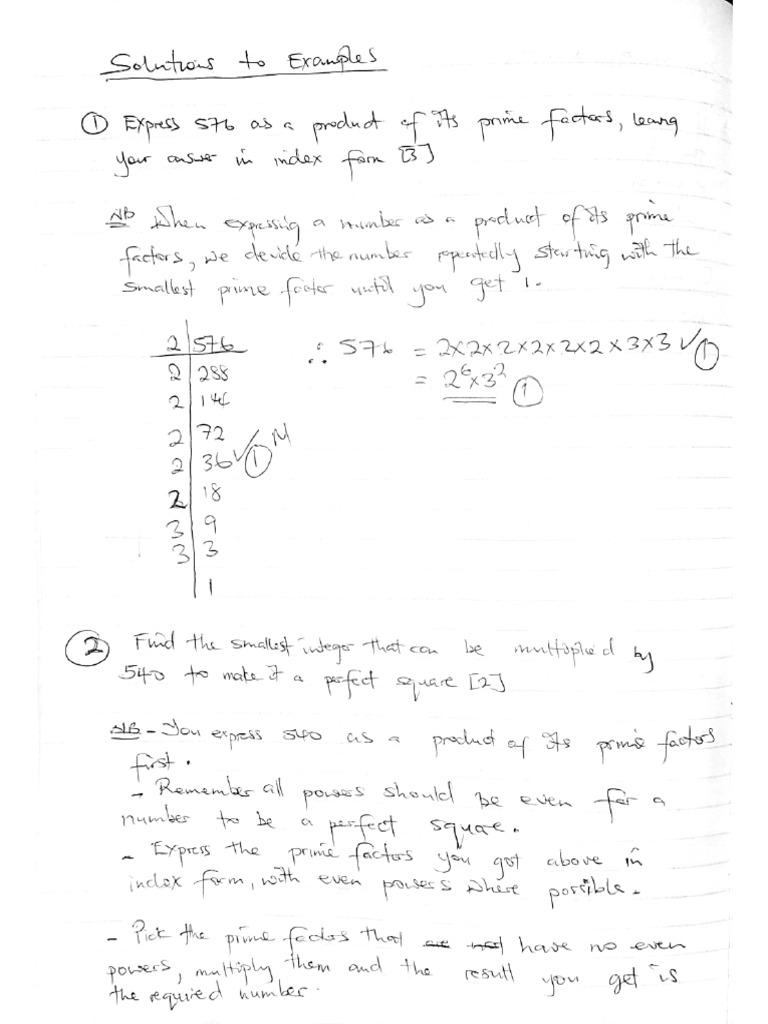 Solutions to Examples
① Express 576 as a product of its prime factors, leaving
your answer in index form [3]
NB When expressing a number as a product of its prime
factors, we devide the number repeatedly starting with the
smallest prime factor until you get 1.
2 | 576
2 | 288
2 | 144
2 | 72
2 | 36 ✓ ① M
2 | 18
3 | 9
3 | 3
1
∴ 576 = 2×2×2×2×2×2×3×3 ✓ ①
= 2⁶×3² ①
② Find the smallest integer that can be multiplied by
540 to make it a perfect square [2]
NB - You express 540 as a product of its prime factors
first.
- Remember all powers should be even for a
number to be a perfect square.
- Express the prime factors you got above in
index form, with even powers where possible.
- Pick the prime factors that are not have no even
powers, multiply them and the result you get is
the required number.